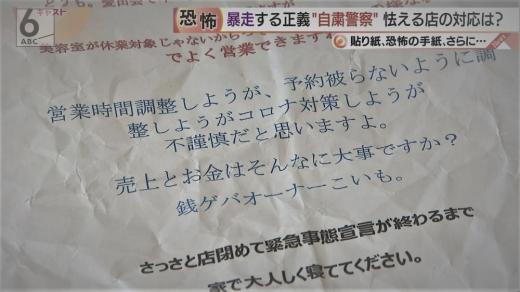 6 キャスト
ABC
恐怖
暴走する正義"自粛警察" 怯える店の対応は？
貼り紙、恐怖の手紙、さらに…
美容室が休業対象じゃないから
でよく営業できます
営業時間調整しようが、予約被らないように調
整しようがコロナ対策しようが
不謹慎だと思いますよ。
売上とお金はそんなに大事ですか？
銭ゲバオーナーこいも。
さっさと店閉めて緊急事態宣言が終わるまで
家で大人しく寝ててください。